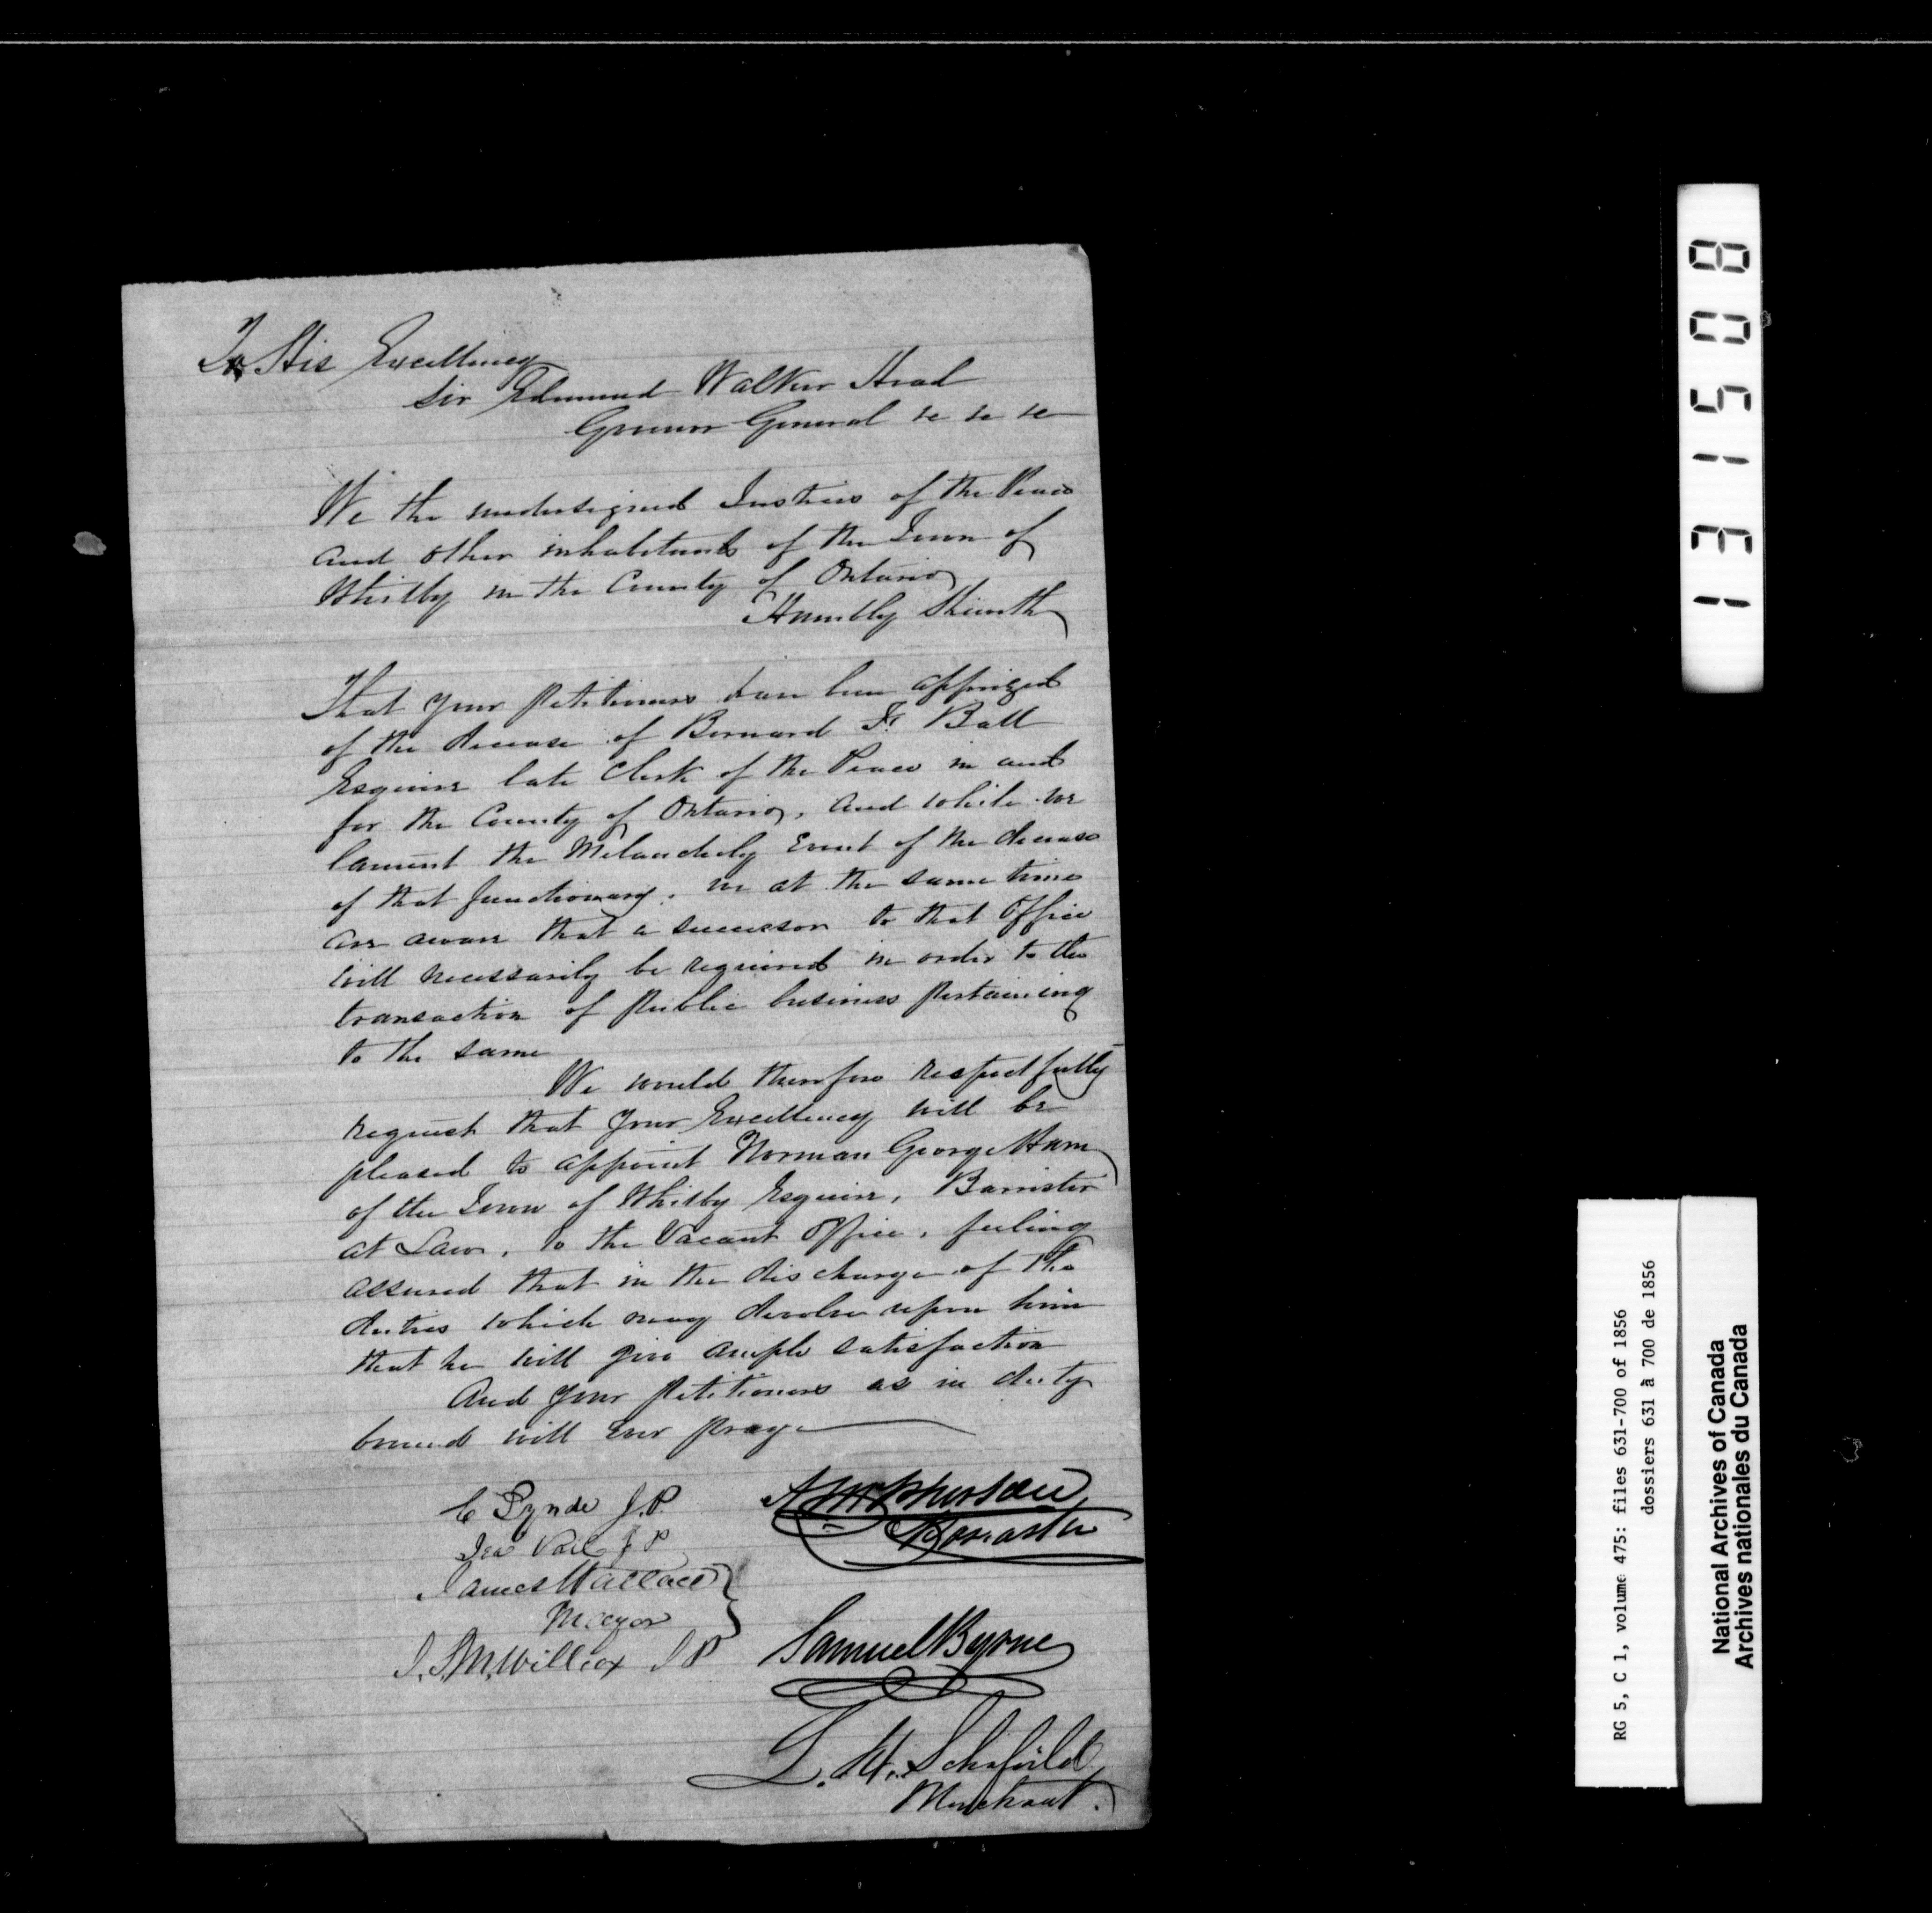 To His Excellency
Sir Edmund Walker Head
Governor General &c &c &c
We the undersigned Justices of the Peace
and other inhabitants of the Town of
Whitby in the County of Ontario
Humbly Sheweth
That your Petitioners have been apprized
of the decease of Bernard F. Ball
Esquire late Clerk of the Peace in and
for the County of Ontario, and while we
lament the Melancholy Event of the decease
of that functionary, we at the same time
are aware that a successor to that Office
will necessarily be required in order to the
transaction of public business pertaining
to the same
We would therefore respectfully
request that your Excellency will be
pleased to appoint Norman George Ham
of the Town of Whitby Esquire, Barrister
at Law, to the Vacant Office, feeling
assured that in the discharge of the
duties which may devolve upon him
that he will give ample satisfaction
And your Petitioners as in duty
bound will ever pray
C Lynde J.P.
J P
James Wallace
Mayor
Willcox J P
A McPherson
Samuel Byrne
L. H. Schofield
Merchant.
131508
RG 5, C 1, volume 475: files 631-700 of 1856
dossiers 631 à 700 de 1856
National Archives of Canada
Archives nationales du Canada